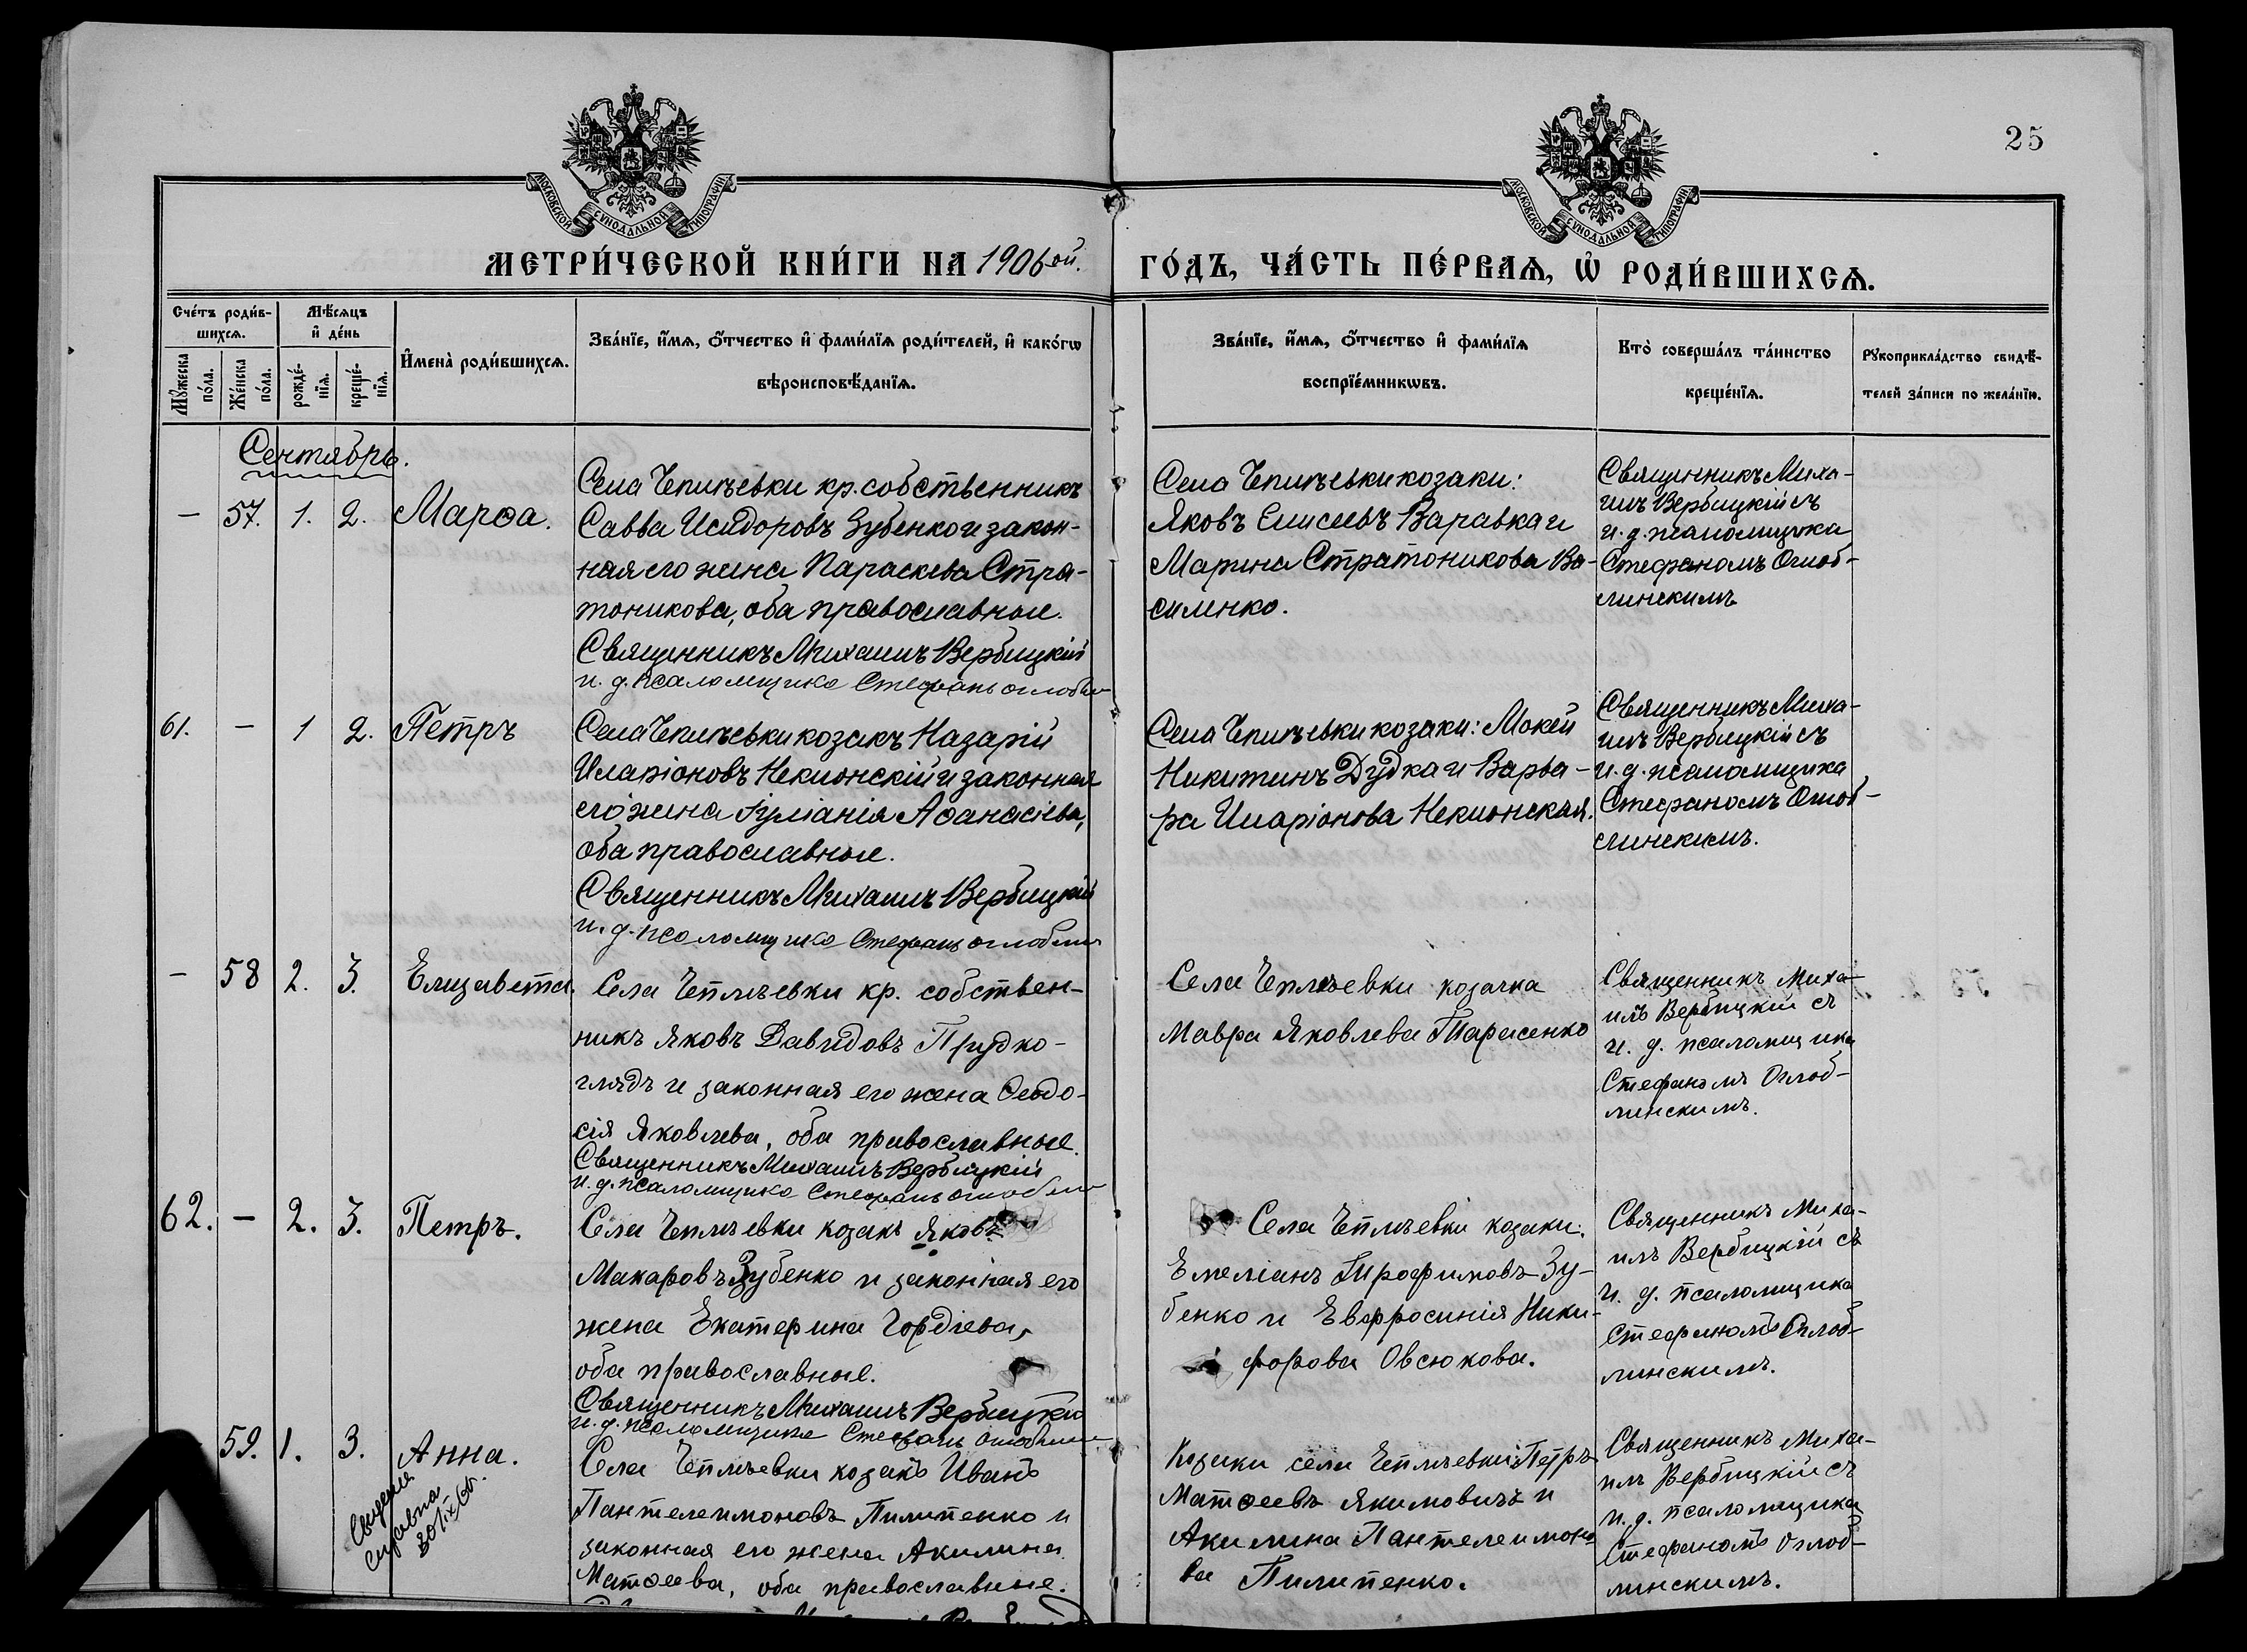 25
МОСКОВСКОЙ СѴНОДАЛЬНОЙ ТИПОГРАФІИ
МОСКОВСКОЙ СѴНОДАЛЬНОЙ ТИПОГРАФІИ
МЕТРИ́ЧЕСКОЙ КНИ́ГИ НА 1906 ой.
ГО́ДЪ, ЧА́СТЬ ПЕ́РВАѦ, Ѡ҆ РОДИ́ВШИХСѦ.
Сче́тъ роди́в-
шихсѧ.
Мꙋ́жеска по́ла.
Же́нска по́ла.
Мѣ́сѧцъ
и҆ де́нь
рожде́-
нїѧ.
креще́-
нїѧ.
И҆мена̀ роди́вшихсѧ.
Зва́нїе, и҆́мѧ, ѻ҆́тчество и҆ фами́лїѧ роди́телей, и҆ како́гѡ
вѣроисповѣ́данїѧ.
Зва́нїе, и҆́мѧ, ѻ҆́тчество и҆ фами́лїѧ
воспрїе́мникѡвъ.
Кто̀ соверша́лъ та́инство
креще́нїѧ.
Рꙋкоприкла́дство свидѣ́-
телей за́писи по жела́нїю.
Сентябрь.
— 57. 1. 2. Марѳа.
Села Чеплѣевки кр. собственникъ
Савва Исидоровъ Зубенко и закон-
ная его жена Параскева Стра-
тоникова, оба православные.
Священникъ Михаилъ Вербицкій
и. д. псаломщика Стефанъ
Села Чеплѣевки козаки:
Яковъ Елисеевъ Варавка и
Марина Стратоникова Ва-
силенко.
Священникъ Миха-
илъ Вербицкій съ
и. д. псаломщика
Стефаномъ Оглоб-
линскимъ
61. — 1 2. Петръ
Села Чеплѣевки козакъ Назарій
Иларіоновъ Неклонскій и законная
его жена Іуліанія Аѳанасіева,
оба православные.
Священникъ Михаилъ Вербицкій
и. д. псаломщика Стефанъ
Села Чеплѣевки козаки: Мокей
Никитинъ Дудка и Варва-
ра Иларіонова Неклонская.
Священникъ Миха-
илъ Вербицкій съ
и. д. псаломщика
Стефаномъ Оглоб-
линскимъ.
— 58 2. 3. Елизавета.
Села Чеплѣевки кр. собствен-
никъ Яковъ Давидовъ Прудко-
глядъ и законная его жена Ѳеодо-
сія Яковлева, оба православные.
Священникъ Михаилъ Вербицкій
и. д. псаломщика Стефанъ
Села Чеплѣевки козачка
Мавра Яковлева Тарасенко
Священникъ Миха-
илъ Вербицкій съ
и. д. псаломщика
Стефаномъ Оглоб-
линскимъ.
62. — 2. 3. Петръ.
Села Чеплѣевки козакъ Яковъ
Макаровъ Зубенко и законная его
жена Екатерина Гордіева,
оба православные.
Священникъ Михаилъ Вербицкій
и. д. псаломщика Стефанъ
Села Чеплѣевки козаки:
Емеліанъ Трофимовъ Зу-
бенко и Евфросинія Ники-
форова Овсюкова.
Священникъ Миха-
илъ Вербицкій съ
и. д. псаломщика
Стефаномъ Оглоб-
линскимъ.
59. 1. 3. Анна.
Села Чеплѣевки козакъ Иванъ
Пантелеимоновъ Пилипенко и
законная его жена Акилина
Матѳеева, оба православные.
Козаки села Чеплѣевки: Петръ
Матѳеевъ Якимовичъ и
Акилина Пантелеимоно
ва Пилипенко.
Священникъ Миха-
илъ Вербицкій съ
и. д. псаломщика
Стефаномъ Оглоб-
линскимъ.